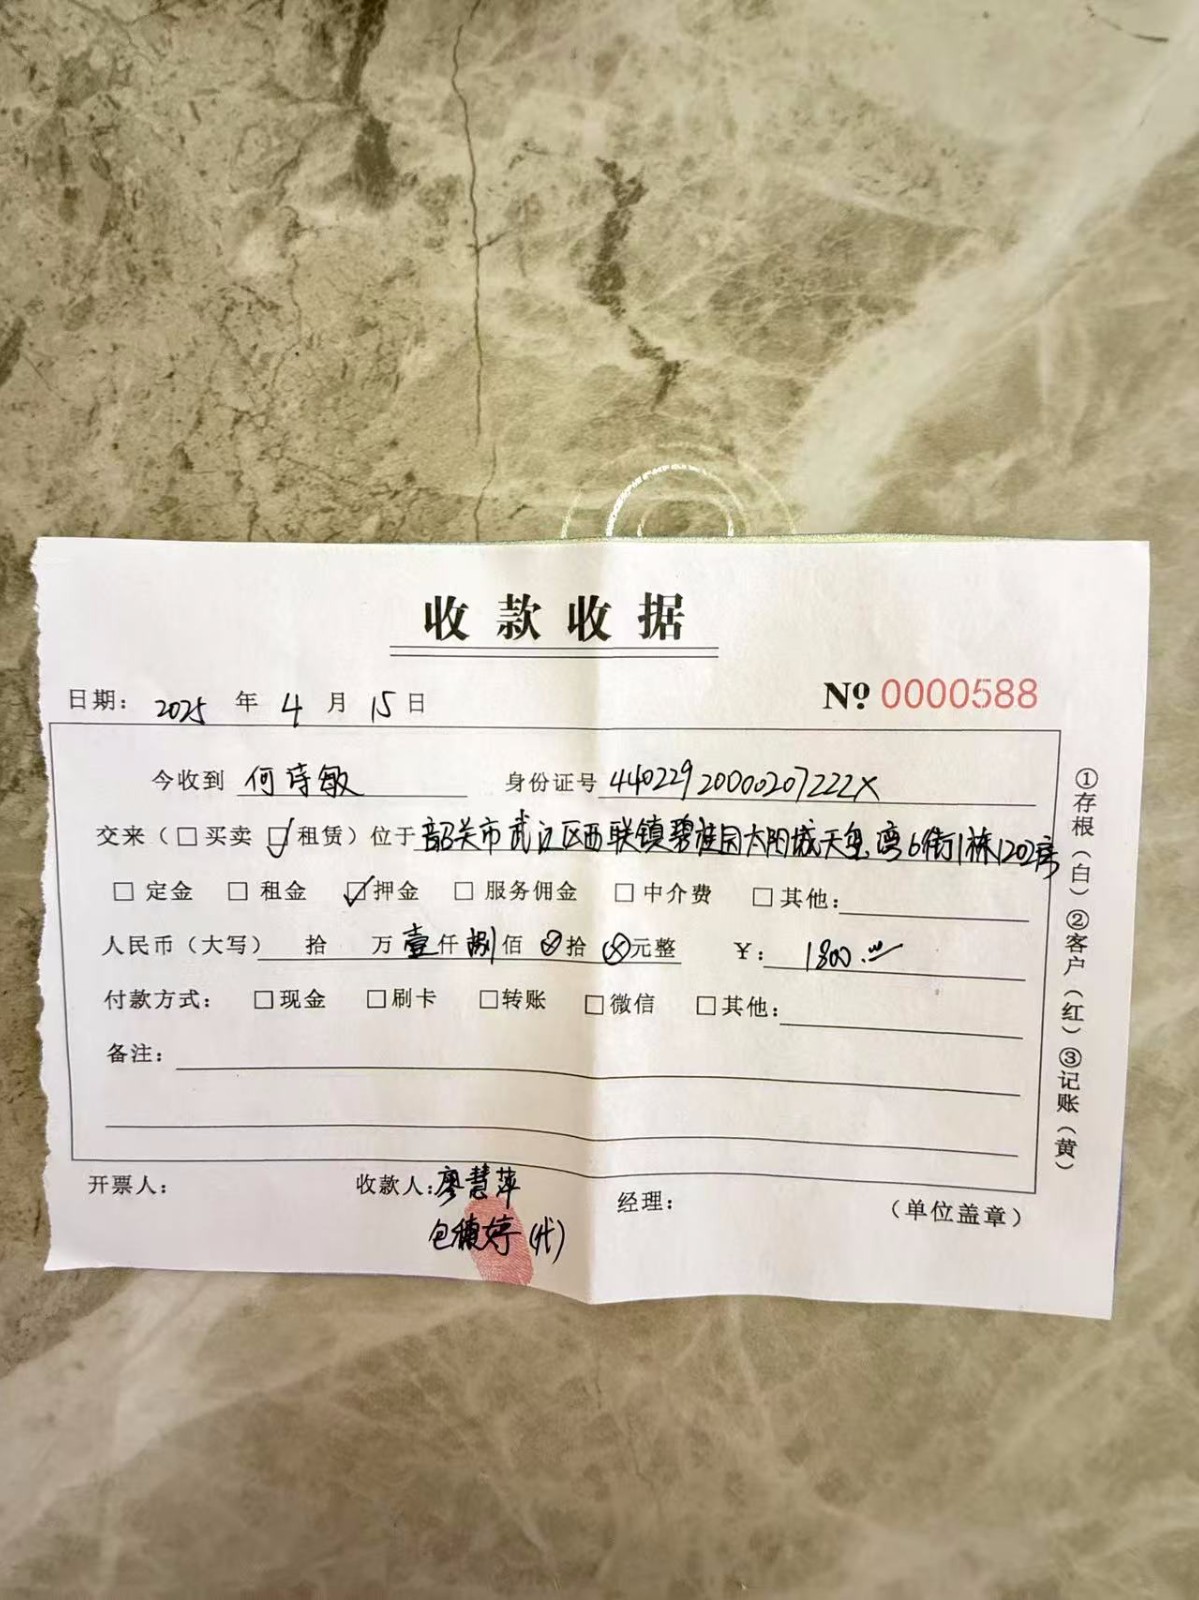 收款收据
日期: 2025 年 4 月 15 日 Nº 0000588
今收到 何诗敏 身份证号 44022920000207222X
交来(□买卖 ☑租赁)位于 韶关市武江区西联镇碧桂园太阳城天玺湾6街1栋1202房
□ 定金 □ 租金 ☑押金 □ 服务佣金 □中介费 □其他:
人民币(大写) 拾 万 壹仟 捌佰 ⊗拾 ⊗元整 ¥: 1800.00
付款方式: □现金 □刷卡 □转账 □微信 □其他:
备注:
开票人: 收款人:廖慧萍 经理: (单位盖章)
包 婷(代)
①存根(白)②客户(红)③记账(黄)